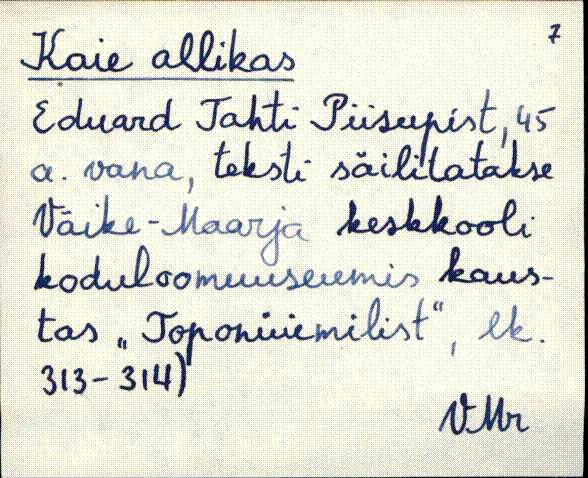 7
Kaie allikas
Eduard Tahti Piisupist, 45
a. vana, teksti säilitatakse
Väike-Maarja keskkooli
koduloomuuseumis kaus-
tas „Toponüümilist", lk.
313-314)
VMr